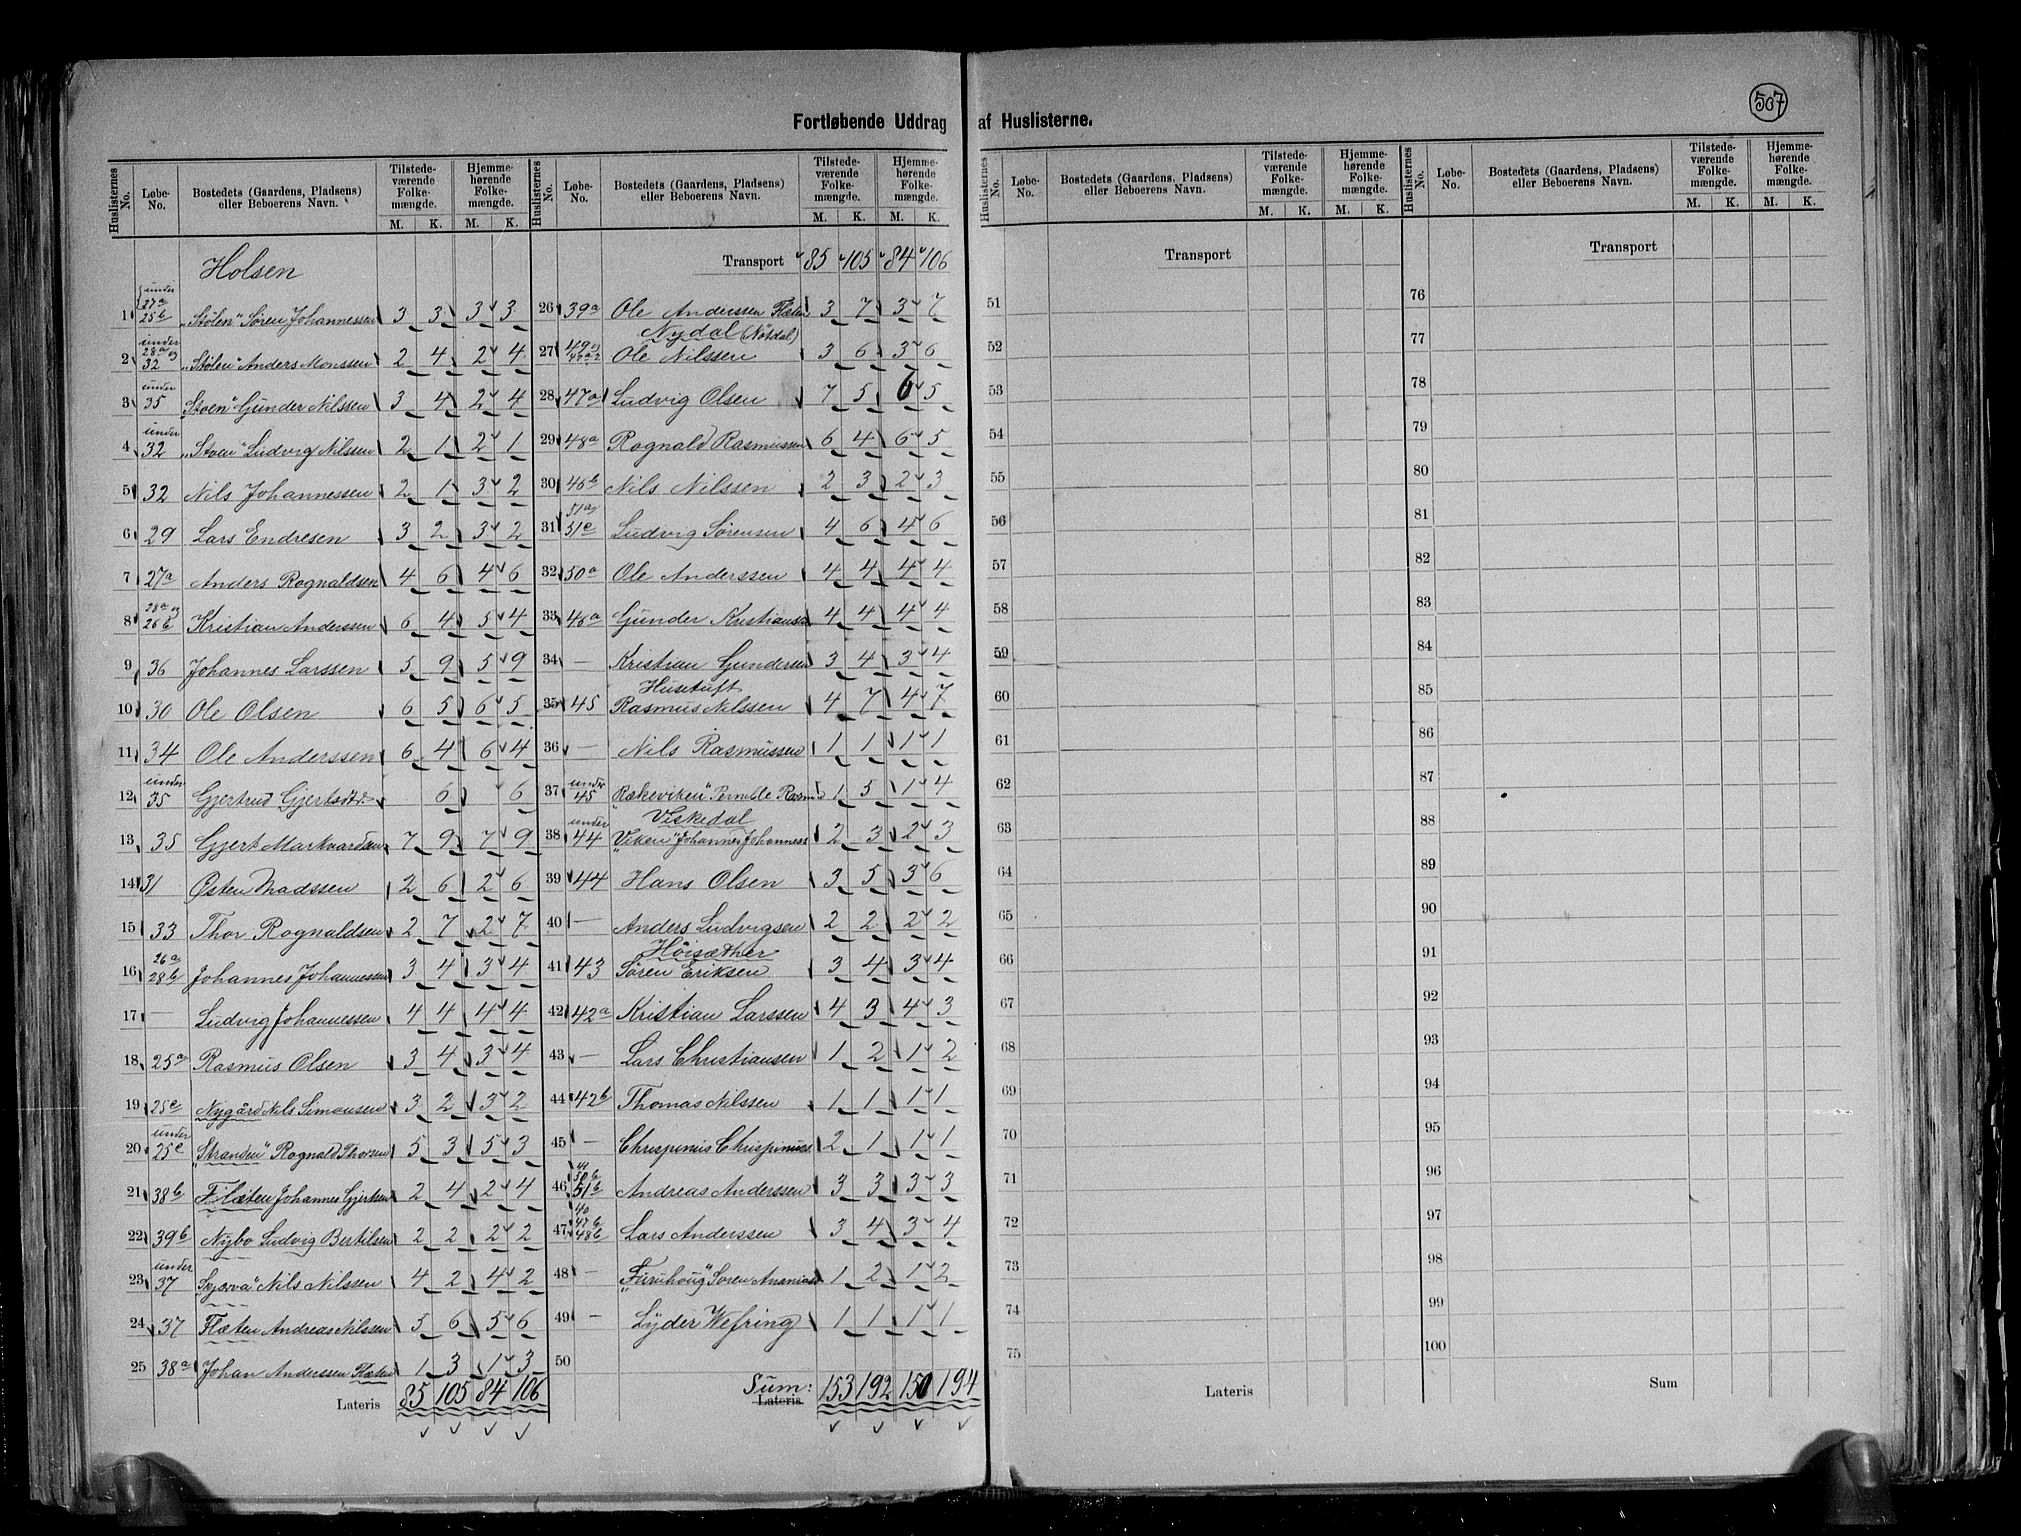 507
Fortløbende Uddrag af Huslisterne.
Huslisternes No. | Løbe-No. | Bostedets (Gaardens, Pladsens) eller Beboerens Navn. | Tilstedeværende Folkemængde. M. K. | Hjemmehørende Folkemængde. M. K.
Holsen
1 | under 27a 25b | "Stølen" Søren Johannessen | 3 | 3 | 3 | 3
2 | under 28a og 32 | "Stølen" Anders Monssen | 2 | 4 | 2 | 4
3 | under 35 | "Stoen" Gunder Nilssen | 3 | 4 | 2 | 4
4 | under 32 | "Stoen" Ludvig Nilssen | 2 | 1 | 2 | 1
5 | 32 | Nils Johannessen | 2 | 1 | 3 | 2
6 | 29 | Lars Endresen | 3 | 2 | 3 | 2
7 | 27a | Anders Rognaldsen | 4 | 6 | 4 | 6
8 | 28a og 26b | Kristian Anderssen | 6 | 4 | 5 | 4
9 | 36 | Johannes Larssen | 5 | 9 | 5 | 9
10 | 30 | Ole Olsen | 6 | 5 | 6 | 5
11 | 34 | Ole Anderssen | 6 | 4 | 6 | 4
12 | under 35 | Gjertrud Gjertsdtr. | | 6 | | 6
13 | 35 | Gjert Markvardsen | 7 | 9 | 7 | 9
14 | 31 | Østen Madssen | 2 | 6 | 2 | 6
15 | 33 | Thor Rognaldsen | 2 | 7 | 2 | 7
16 | 26a 28b | Johannes Johannessen | 3 | 4 | 3 | 4
17 | — | Ludvig Johannessen | 4 | 4 | 4 | 4
18 | 25a | Rasmus Olsen | 3 | 4 | 3 | 4
19 | 25c | Nygård Nils Simonsen | 3 | 2 | 3 | 2
20 | under 25c | "Stranden" Rognald Thorsen | 5 | 3 | 5 | 3
21 | 38b | Flæten Johannes Gjertsen | 2 | 4 | 2 | 4
22 | 39b | Nybo Ludvig Bertilsen | 2 | 2 | 2 | 2
23 | under 37 | Nils Nilssen | 4 | 2 | 4 | 2
24 | 37 | Flæten Andreas Nilssen | 5 | 6 | 5 | 6
25 | 38a | Johan Anderssen Flæten | 1 | 3 | 1 | 3
Lateris | 85 | 105 | 84 | 106
Huslisternes No. | Løbe-No. | Bostedets (Gaardens, Pladsens) eller Beboerens Navn. | Tilstedeværende Folkemængde. M. K. | Hjemmehørende Folkemængde. M. K.
Transport | 85 | 105 | 84 | 106
26 | 39a | Ole Anderssen Flæten | 3 | 7 | 3 | 7
Nydal (Nøsdal)
27 | 49 og 47a2 | Ole Nilssen | 3 | 6 | 3 | 6
28 | 47a | Ludvig Olsen | 7 | 5 | 6 | 5
29 | 48a | Rognald Rasmussen | 6 | 4 | 6 | 5
30 | 46b | Nils Nilssen | 2 | 3 | 2 | 3
31 | 51a 51c | Ludvig Sørensen | 4 | 6 | 4 | 6
32 | 50a | Ole Anderssen | 4 | 4 | 4 | 4
33 | 46a | Gunder Kristiansen | 4 | 4 | 4 | 4
34 | — | Kristian Gundersen | 3 | 4 | 3 | 4
Husetuft
35 | 45 | Rasmus Nilssen | 4 | 7 | 4 | 7
36 | — | Nils Rasmussen | 1 | 1 | 1 | 1
37 | under 45 | "Rækeviken" Pernille Rasmd | 1 | 5 | 1 | 4
Viskedal
38 | under 44 | "Viken" Johannes Johanness | 2 | 3 | 2 | 3
39 | 44 | Hans Olsen | 3 | 5 | 3 | 6
40 | — | Anders Ludvigsen | 2 | 2 | 2 | 2
Höisæther
41 | 43 | Søren Eriksen | 3 | 4 | 3 | 4
42 | 42a | Kristian Larssen | 4 | 3 | 4 | 3
43 | — | Lars Christiansen | 1 | 2 | 1 | 2
44 | 42b | Thomas Nilssen | 1 | 1 | 1 | 1
45 | — | Chrispinus Chrispinuss | 2 | 1 | 1 | 1
46 | 41 50b 51b | Andreas Anderssen | 3 | 3 | 3 | 3
47 | 40 47b 48b | Lars Anderssen | 3 | 4 | 3 | 4
48 | — | "Furuhoug" Søren | 1 | 2 | 1 | 2
49 | — | Lyder Wefring | 1 | 1 | 1 | 1
50
Sum: Lateris | 153 | 192 | 150 | 194
Huslisternes No. | Løbe-No. | Bostedets (Gaardens, Pladsens) eller Beboerens Navn. | Tilstedeværende Folkemængde. M. K. | Hjemmehørende Folkemængde. M. K.
Transport
51
52
53
54
55
56
57
58
59
60
61
62
63
64
65
66
67
68
69
70
71
72
73
74
75
Lateris
Huslisternes No. | Løbe-No. | Bostedets (Gaardens, Pladsens) eller Beboerens Navn. | Tilstedeværende Folkemængde. M. K. | Hjemmehørende Folkemængde. M. K.
Transport
76
77
78
79
80
81
82
83
84
85
86
87
88
89
90
91
92
93
94
95
96
97
98
99
100
Sum